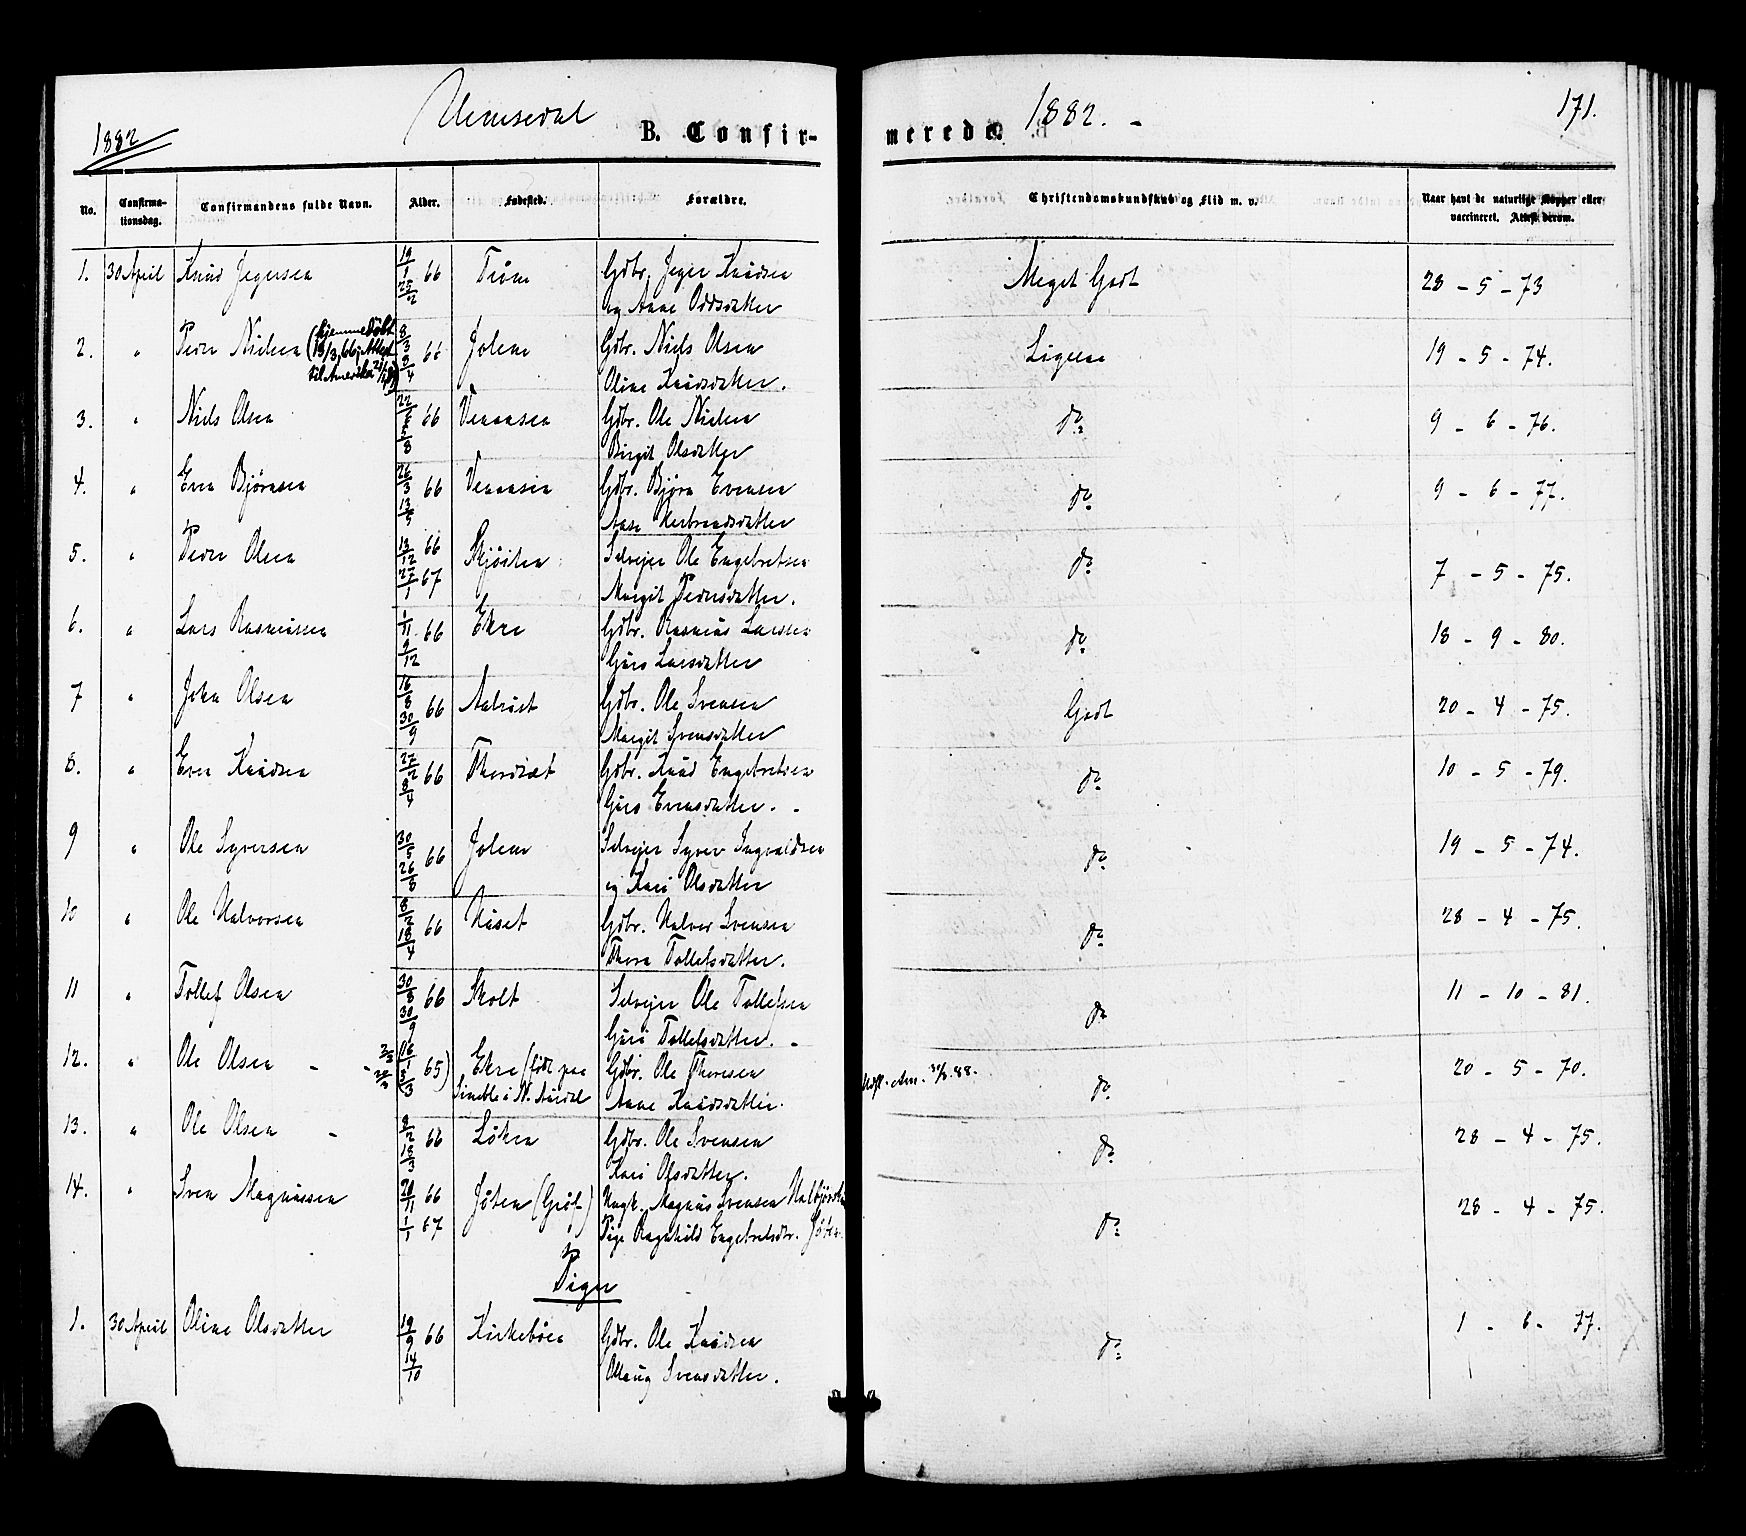 1882
Hemsedal
B. Confir-
merede.
1882. -
171.
No.
Confirma-
tionsdag.
Confirmandens fulde Navn.
Alder.
Fødested.
Forældre.
Christendomskundskab og Flid m. v.
Naar havt de naturlige Kopper eller
vaccineret. Attest derom.
1. 30 April Knud Jegersen 19/1 66 Trøim Gdbr. Jeger Knudsen Meget Godt 28 - 5 - 73
25/2 og Anne Oddsdatter
2. " Peder Nielsen (hjemmedøbt 8/3 66 Jolem Gdbr. Niels Olsen Ligesaa 19 - 5 - 74.
til Amerika 2/4 Oline Knudsdatter.
3. " Niels Olsen 66 Venaasen Gdbr. Ole Nielsen do 9 - 6 - 76.
Birgit Olsdatter
4. " Even Bjørnsen 26/3 66 Venaasen Gdbr. Bjørn Evensen do 9 - 6 - 77.
13/5 Aase Herbrandsdatter
5. " Peder Olsen 13/12 66 Skjøiten Selveier Ole Engebretsen do 7 - 5 - 75.
27/1 67 Margit Pedersdatter.
6. " Lars Rasmussen 1/11 66 Ekre Gdbr. Rasmus Larssen do 18 - 9 - 80.
9/12 Guro Larsdatter
7 " John Olsen 16/8 66 Aalrust Gdbr. Ole Svensen Godt 20 - 4 - 75.
30/9 Margit Svensdatter
8. " Even Knudsen 22/2 66 Thordset Gdbr. Knud Engebretsen do 10 - 5 - 79.
8/4 Guro Evensdatter. -
9 " Ole Syversen 30/5 66 Jolem Selveier Syver Ingvaldsen do 19 - 5 - 74.
26/8 og Kari Olsdatter
10 " Ole Halvorsen 8/2 66 Huset Gdbr. Halvor Svensen do 28 - 4 - 75.
18/4 Thora Tollefsdatter.
11 " Tollef Olsen 30/8 66 Skolt Selveier Ole Tollefsen do 11 - 10 - 81.
30/9 Guri Tollefsdatter. -
12. " Ole Olsen - 16/1 65) Ekre (født paa Gdbr. Ole Thoresen Udfl. Am. 88. do 20 - 5 - 70.
5/3 i N. Aurdal Anne Knudsdatter.
13. " Ole Olsen - 9/2 66 Løken Gdbr. Ole Svensen do 28 - 4 - 75.
18/3 Kari Olsdatter.
14. " Sven Magnussen 20/11 66 Jøten (Grøf) Ungk. Magnus Svensen do 28 - 4 - 75.
1/1 67 Pige Ragnhild Engebretsdtr. Jøten.
Piger
1. 30 April Oline Olsdatter 19/9 66 Kirkebøen Gdbr. Ole Knudsen do 1 - 6 - 77.
14/10 Ollaug Svensdatter.